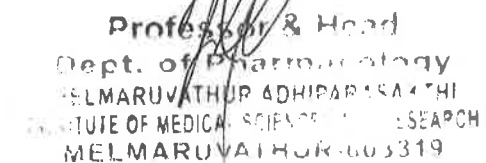 Professor & Head
Dept. of Pharmacology
MELMARUVATHUR ADHIPARASAKTHI
INSTITUTE OF MEDICAL SCIENCES RESEARCH
MELMARUVATHUR-603319